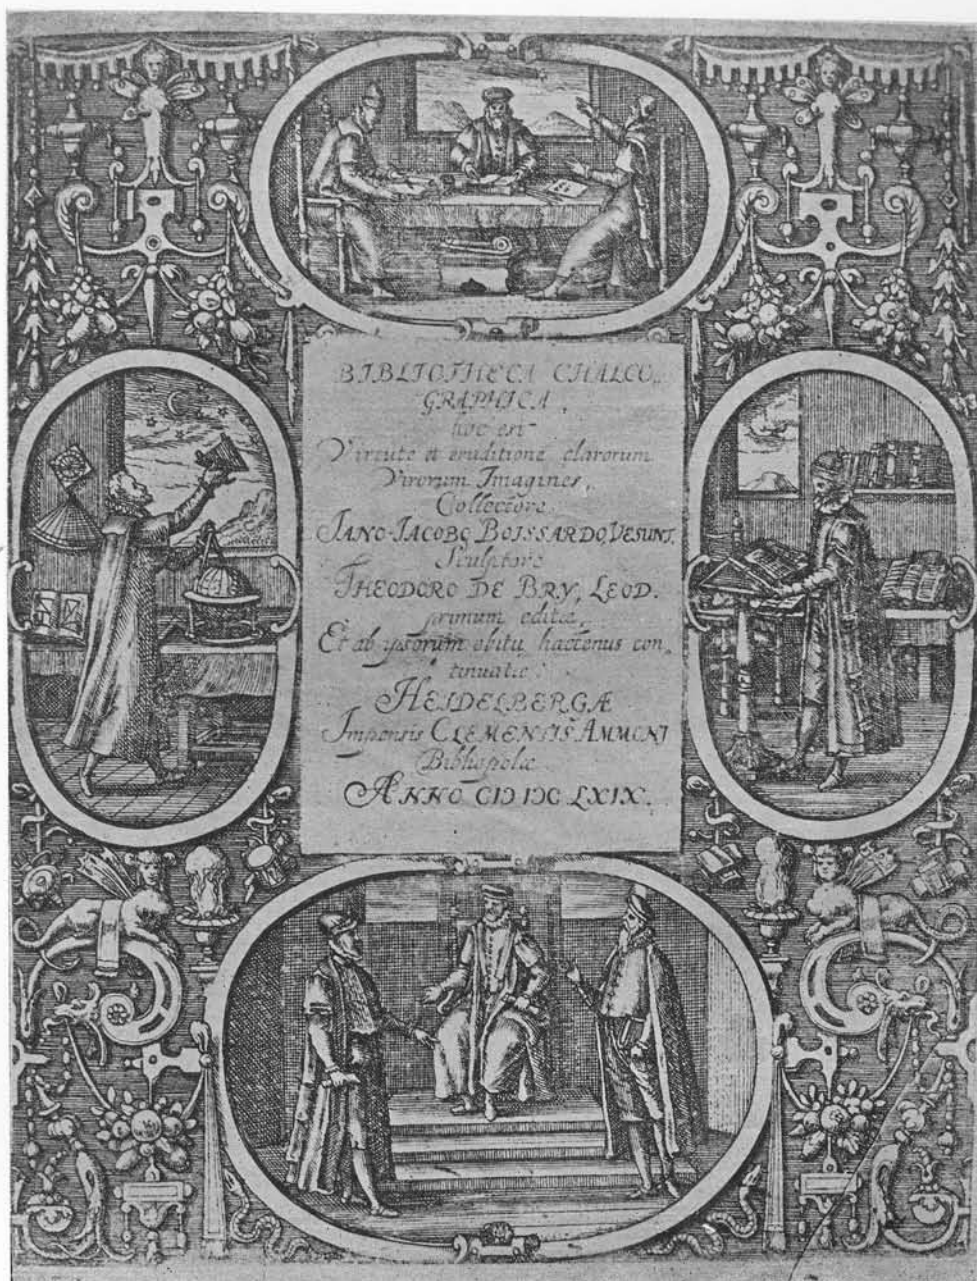 BIBLIOTHECA CHALCO-
GRAPHICA,
hoc est
Virtute et eruditione clarorum
Virorum Imagines,
Collectore
JANO-JACOBO BOISSARDO, VESUNT.
Sculptore
THEODORO DE BRY, LEOD.
primum editæ,
Et ab ipsorum obitu hactenus con-
tinuatæ:
HEIDELBERGÆ
Impensis CLEMENTIS AMMONI
Bibliopolæ
ANNO CIↃ IↃC LXIX.